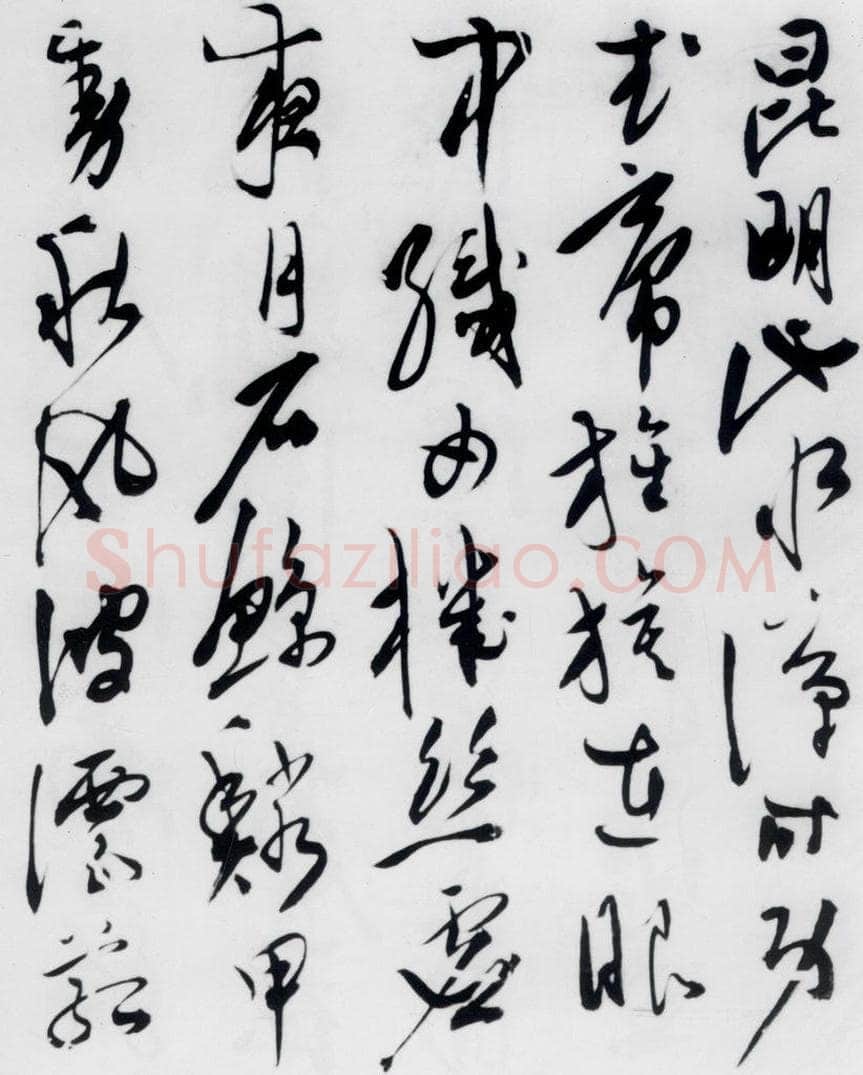 昆明池水漢時功
武帝旌旗在眼
中織女機絲虛
夜月石鯨鱗甲
動秋風波漂菰
Shufaziliao.COM